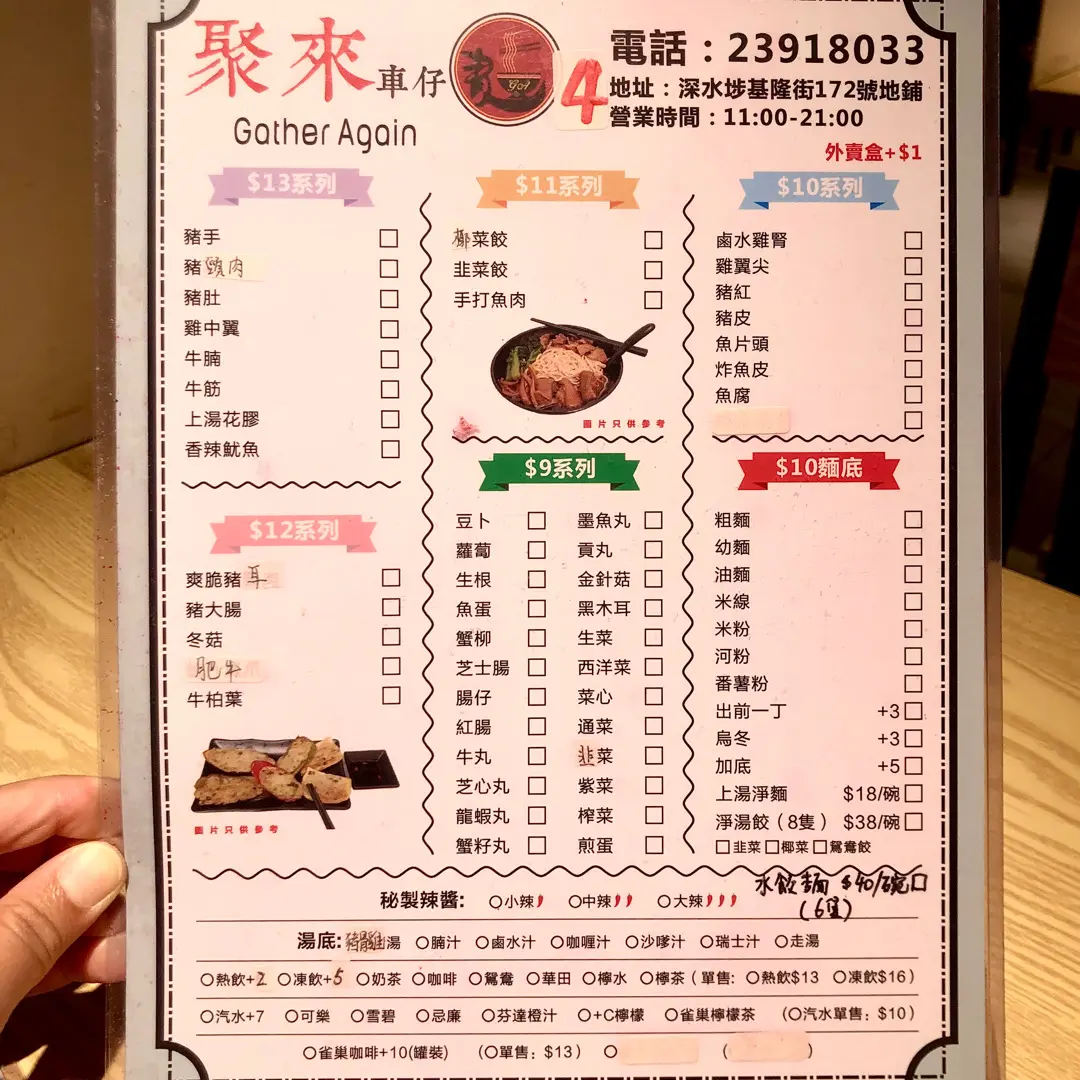 聚來車仔
Gather Again
4
電話：23918033
地址：深水埗基隆街172號地鋪
營業時間：11:00-21:00
外賣盒+$1
$13系列
豬手
豬頸肉
豬肚
雞中翼
牛腩
牛筋
上湯花膠
香辣魷魚
$12系列
爽脆豬耳
豬大腸
冬菇
肥牛
牛柏葉
圖片只供參考
$11系列
椰菜餃
韭菜餃
手打魚肉
圖片只供參考
$9系列
豆卜 墨魚丸
蘿蔔 貢丸
生根 金針菇
魚蛋 黑木耳
蟹柳 生菜
芝士腸 西洋菜
腸仔 菜心
紅腸 通菜
牛丸 韭菜
芝心丸 紫菜
龍蝦丸 榨菜
蟹籽丸 煎蛋
$10系列
鹵水雞腎
雞翼尖
豬紅
豬皮
魚片頭
炸魚皮
魚腐
$10麵底
粗麵
幼麵
油麵
米線
米粉
河粉
番薯粉
出前一丁 +3
烏冬 +3
加底 +5
上湯淨麵 $18/碗
淨湯餃（8隻） $38/碗
韭菜 椰菜 鴛鴦餃
水餃麵 $40/碗
(6隻)
秘製辣醬: 小辣 中辣 大辣
湯底: 湯 腩汁 鹵水汁 咖喱汁 沙嗲汁 瑞士汁 走湯
熱飲+2 凍飲+5 奶茶 咖啡 鴛鴦 華田 檸水 檸茶（單售: 熱飲$13 凍飲$16）
汽水+7 可樂 雪碧 忌廉 芬達橙汁 +C檸檬 雀巢檸檬茶 （汽水單售: $10）
雀巢咖啡+10(罐裝) （單售: $13）